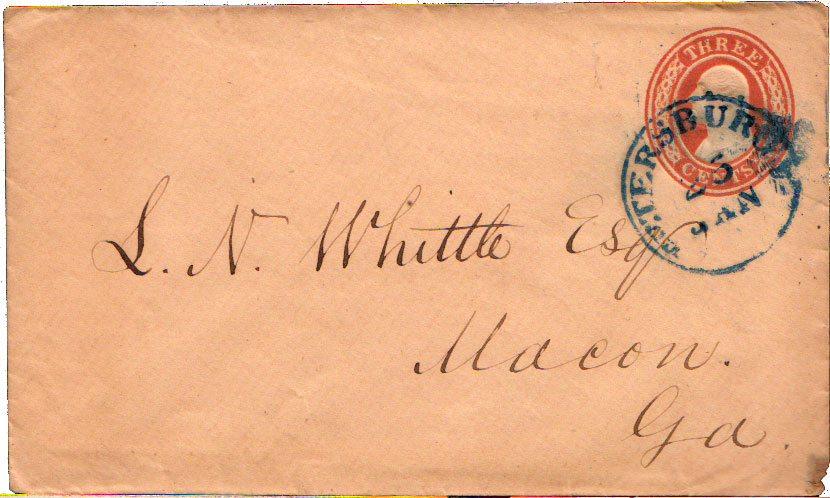 THREE
CENTS
PETERSBURG
JAN
L. N. Whittle Esq
Macon.
Ga.